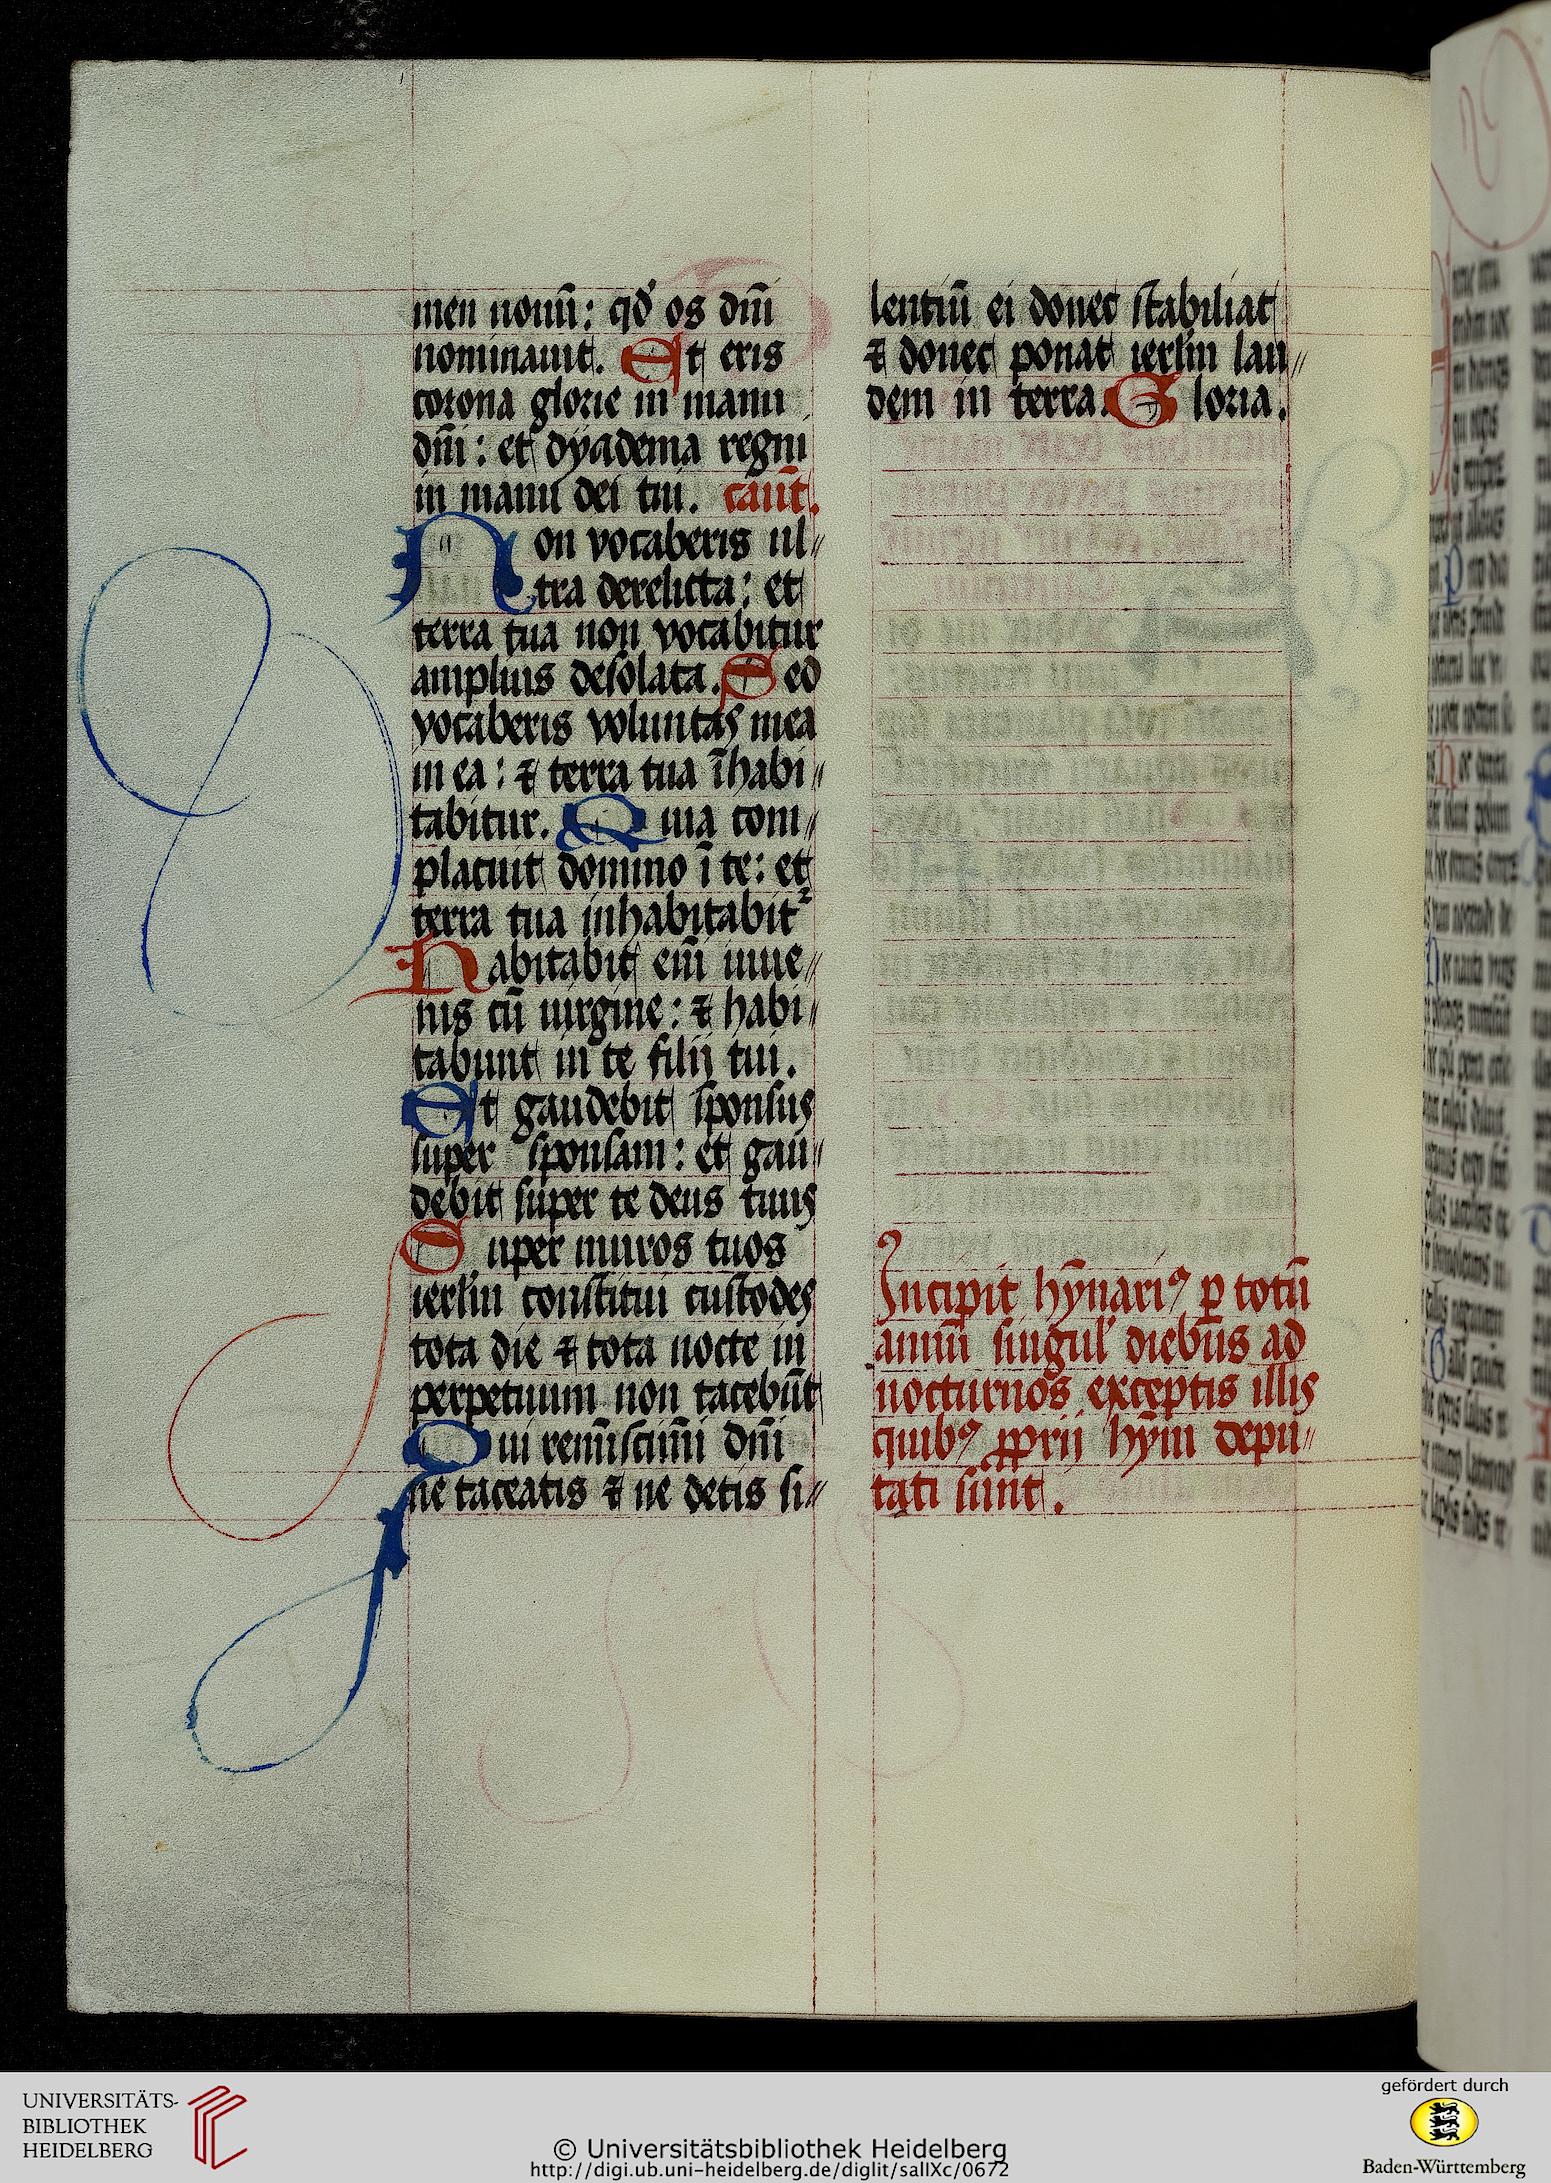 men nouū: qd' os dn̄i
nominauit. Et eris
corona glorie in manu
dn̄i: et dyadema regni
in manu dei tui. cant̄.
Non vocaberis ul〃
tra derelicta: et
terra tua non vocabitur
amplius desolata. Sed
vocaberis voluntas mea
in ea: ⁊ terra tua īhabi〃
tabitur. Quia com〃
placuit domino ī te: et
terra tua inhabitabit᷑
Habitabit em̄ iuue〃
nis cū uirgine: ⁊ habi〃
tabunt in te filij tui.
Et gaudebit sponsus
super sponsam: et gau〃
debit super te deus tuus
Super muros tuos
ierl̄m constitui custodes
tota die ⁊ tota nocte in
perpetuum non tacebūt
Qui remīscim̄i dn̄i
ne taceatis ⁊ ne detis si〃
lentiū ei donec stabiliat
⁊ donec ponat ierl̄m lau〃
dem in terra. Gloria.
Incipit hȳnariꝰ ꝑ totū
annū singul' diebus ad
nocturnos exceptis illis
quibꝰ ꝓprij hȳni depu〃
tati sunt.
UNIVERSITÄTS-
BIBLIOTHEK
HEIDELBERG
© Universitätsbibliothek Heidelberg
http://digi.ub.uni-heidelberg.de/diglit/salIXc/0672
gefördert durch
Baden-Württemberg